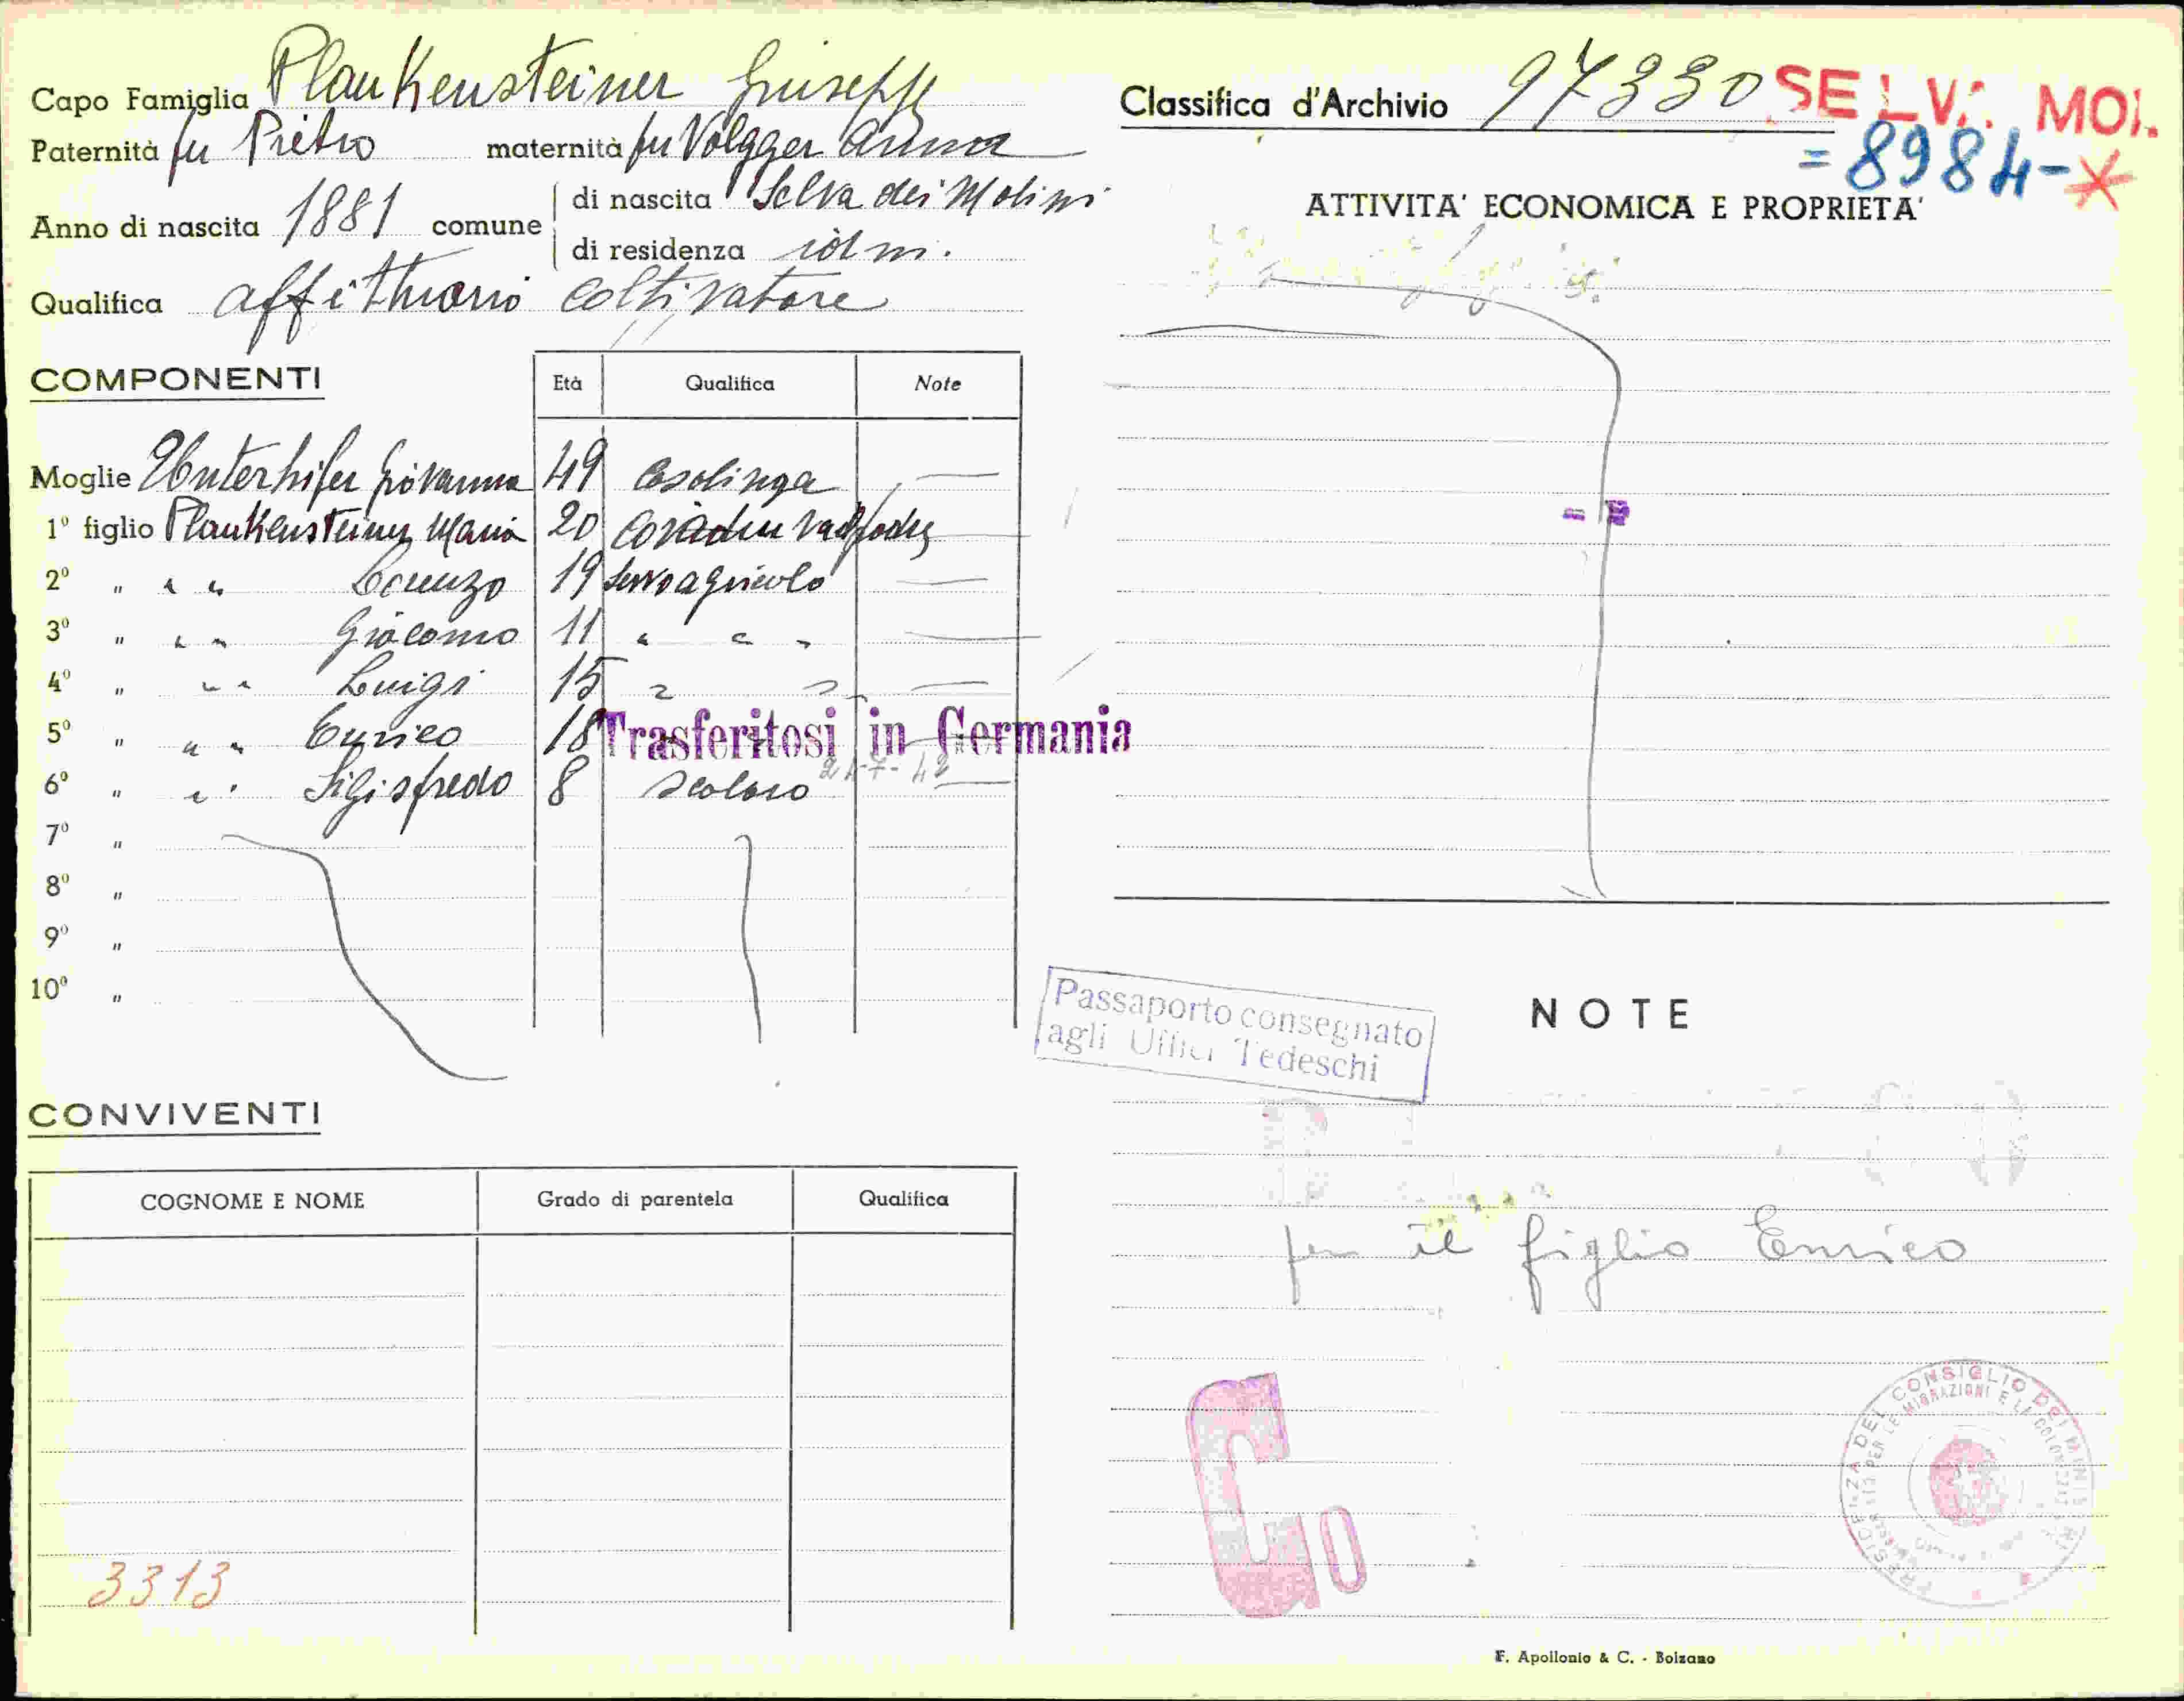 Capo Famiglia Plankensteiner Giuseppe
Paternità fu Pietro maternità fu Volgger Anna
Anno di nascita 1881 comune di nascita Selva dei Molini
di residenza idm.
Qualifica affittuario coltivatore
COMPONENTI
Età Qualifica Note
Moglie Unterhifer Giovanna 49 Casalinga —
1° figlio Plankensteiner Maria 20
2° " " " Lorenzo 19 servo agricolo —
3° " " " Giacomo 11 " " " —
4° " " " Luigi 15 " " —
5° " " " Enrico 18
Trasferitosi in Germania
24-7-42
6° " " " Sigisfredo 8 scolaro —
7° "
8° "
9° "
10° "
CONVIVENTI
COGNOME E NOME Grado di parentela Qualifica
3313
Classifica d'Archivio 97330 SELV. MOL.
= 8984-X
ATTIVITA' ECONOMICA E PROPRIETA'
Passaporto consegnato
agli Uffici Tedeschi
NOTE
per il figlio Enrico
Go
PRESIDENZA DEL CONSIGLIO DEI MINISTRI
F. Apollonio & C. - Bolzano